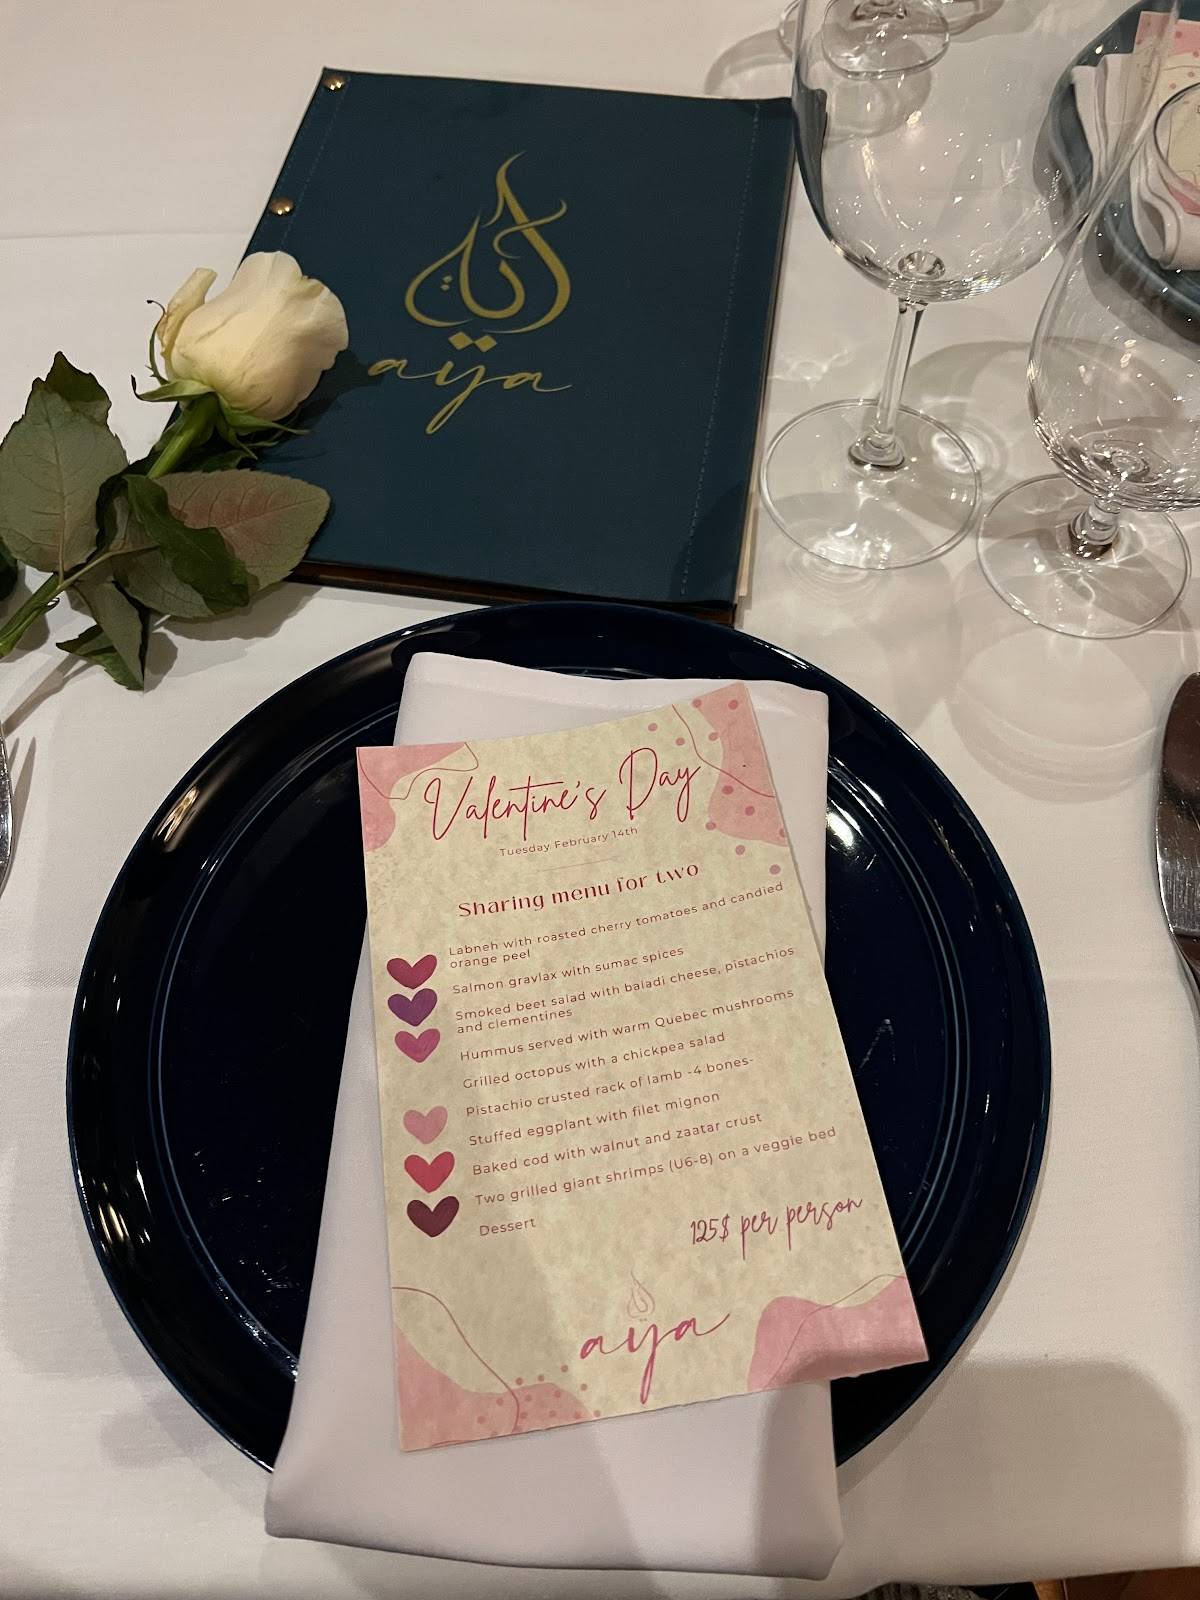 آية
aya
Valentine's Day
Tuesday February 14th
Sharing menu for two
Labneh with roasted cherry tomatoes and candied
orange peel
Salmon gravlax with sumac spices
Smoked beet salad with baladi cheese, pistachios
and clementines
Hummus served with warm Quebec mushrooms
Grilled octopus with a chickpea salad
Pistachio crusted rack of lamb -4 bones-
Stuffed eggplant with filet mignon
Baked cod with walnut and zaatar crust
Two grilled giant shrimps (U6-8) on a veggie bed
Dessert
125$ per person
آية
aya